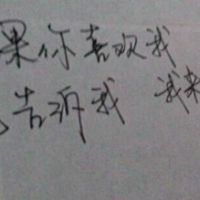 果你喜欢我
告诉我 我来